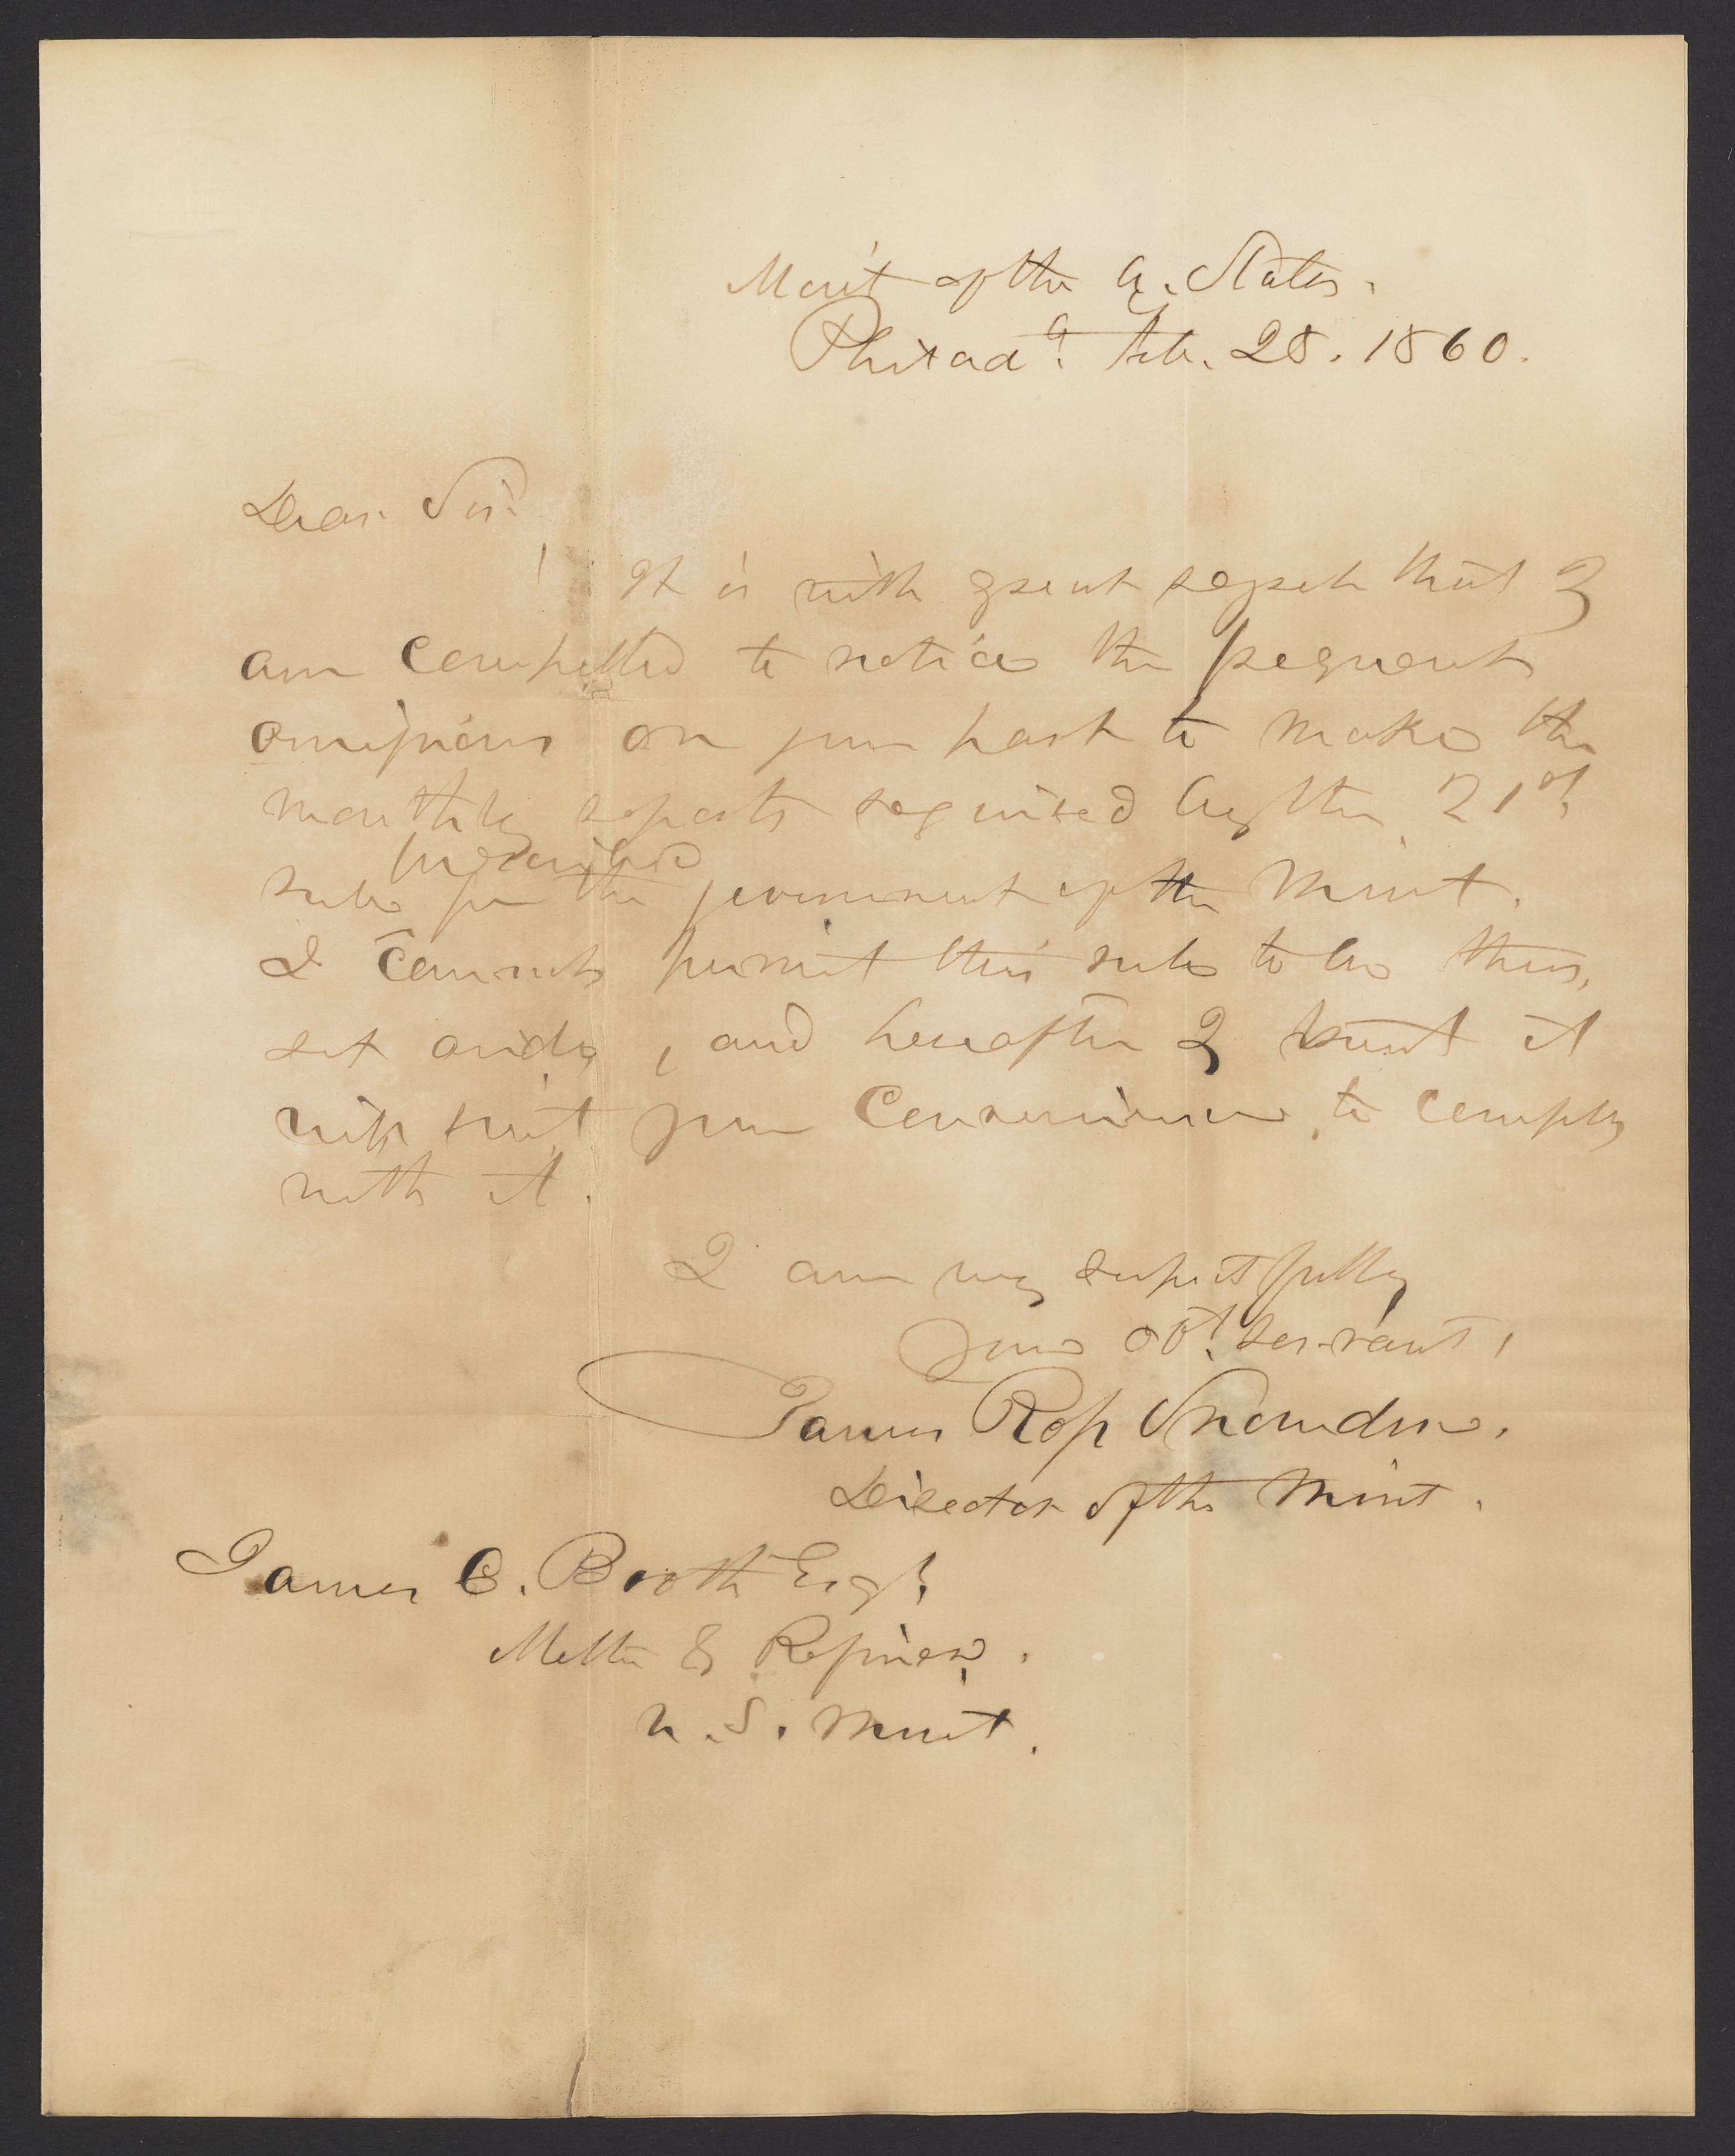 Mint of the U. States.
Philada. Feb. 28. 1860.
Dear Sir:
It is with great regret that I
am compelled to notice the frequent
omissions on your part to make the
monthly reports required by the 21st
prescribed
rule for the government of the Mint.
I cannot permit this rule to be thus
set aside, and hereafter I trust it
will suit your convenience, to comply
with it.
I am very respectfully
Your obt. servant,
James Ross Snowden.
Director of the Mint.
James C. Booth Esqr.
Melter & Refiner.
U.S. Mint.